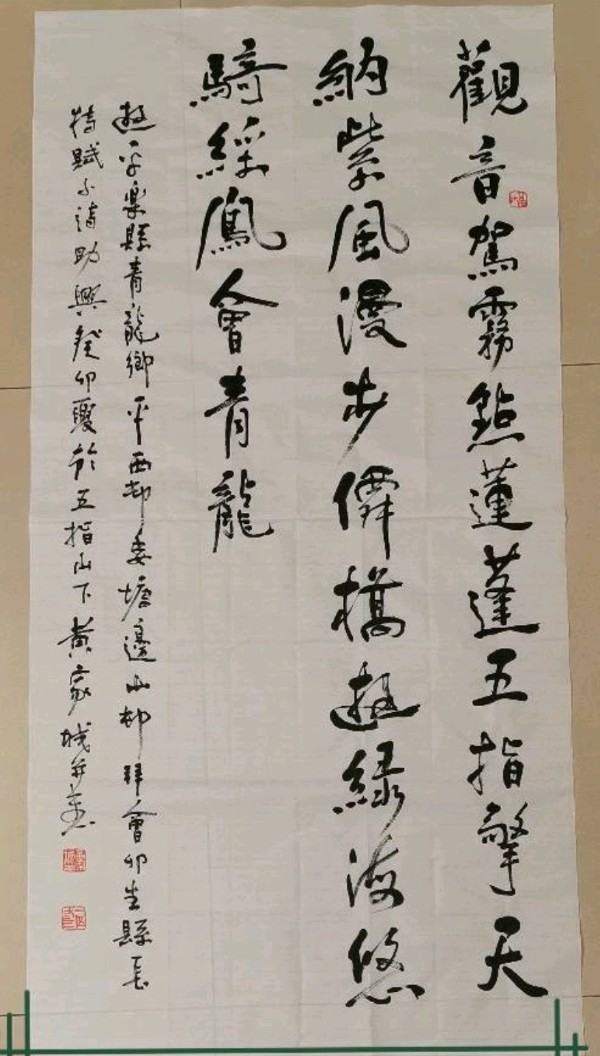 觀音駕霧點蓮蓬五指擎天
納紫風漫步僊橋遊綠海悠
騎綵鳳會青龍
遊平樂縣青龍鄉平西邨委塘邊山邨拜會卯生縣長
特賦小詩助興癸卯夏於五指山下黃家城并書